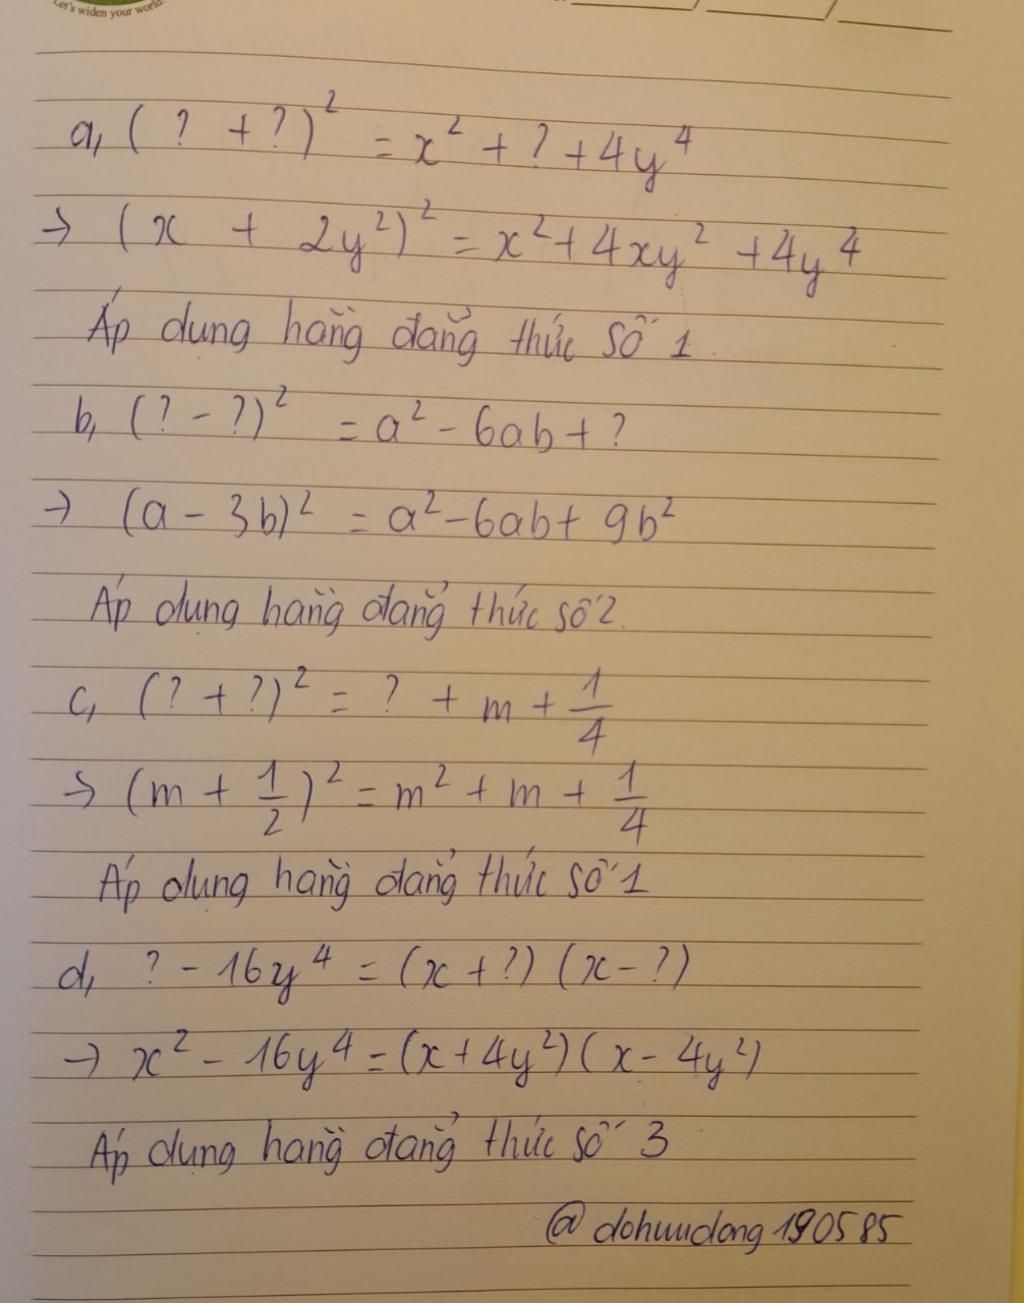 Let's widen your world
a, ( ? + ? )² = x² + ? + 4y⁴
→ (x + 2y²)² = x² + 4xy² + 4y⁴
Áp dụng hằng đẳng thức số 1.
b, (? - ?)² = a² - 6ab + ?
→ (a - 3b)² = a² - 6ab + 9b²
Áp dụng hằng đẳng thức số 2.
c, (? + ?)² = ? + m + 1/4
→ (m + 1/2)² = m² + m + 1/4
Áp dụng hằng đẳng thức số 1
d, ? - 16y⁴ = (x + ?) (x - ?)
→ x² - 16y⁴ = (x + 4y²) (x - 4y²)
Áp dụng hằng đẳng thức số 3
@dohuudong190585